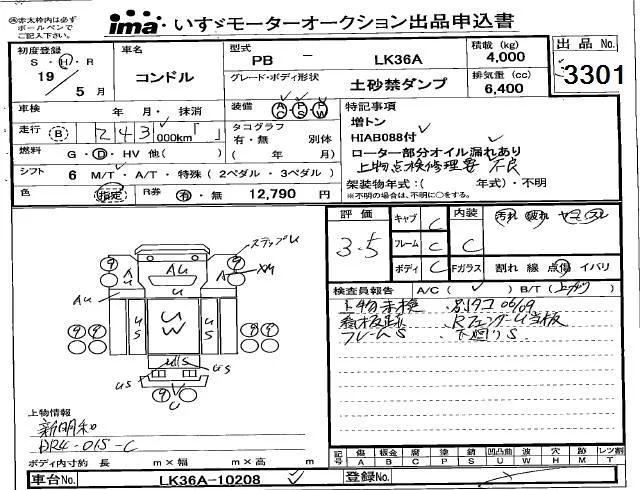 Ⓐ赤太枠内は必ず
ボールペンで
ご記入下さい。
ima・いすゞモーターオークション出品申込書
初度登録
S・H・R
19 / 5 月
車名
コンドル
型式
PB － LK36A
グレード・ボディ形状
土砂禁ダンプ
積載 (kg)
4,000
排気量 (cc)
6,400
出品 No.
3301
車検 年 月・抹消
装備 AC PS PW
走行 B 243 000km「 」
タコグラフ
有・無 別体
( 年 月)
燃料 G・D・HV 他( )
シフト 6 M/T・A/T・特殊 (2ペダル・3ペダル)
色 指定 R券 有・無 12,790 円
特記事項
増トン
HIAB088付
ローター部分オイル漏れあり
上物点検修理要 不良
架装物年式:( 年式)・不明
※不明の場合は、不明に○をする。
評価
3.5
キャブ C
フレーム C
ボディ C
内装 C
Fガラス
汚れ 破れ ヤニ
割れ 線 点傷 イバリ
検査員報告 A/C( ) B/T( )
上物未検 別タコ 06/09
看板跡 Rフェンダー凹当板
フレームS 下廻りS
ステップU
9 9
AU
AU
A
XM
AU
US
UW
US
99
99
US
US
US
9
U
上物情報
新明和
DR4-01S-C
ボディ内寸約 長 m×幅 m×高 m
記号 傷 A 板金 B 腐 C 塗 P 錆 S 凹凸曲 U 波 W 穴 H 跡 M レツ割 T
車台No. LK36A-10208
登録No.